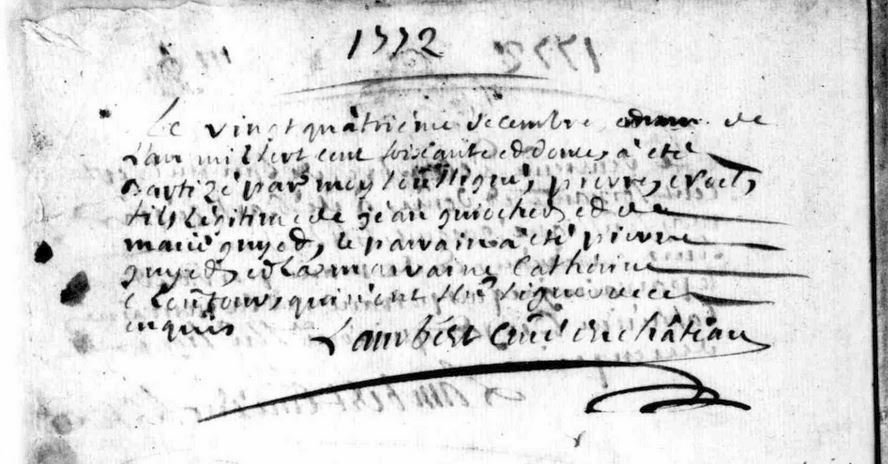 1772
Le vingt quatrieme decembre de
l'an mil sept cent soixante et douze, a été
Baptizé par moy soussigné, pierre, noel,
fils légitime de jean guiochet et de
marie guyet, le parrain a été pierre
guyet, et la marraine Catherine
qui n'ont sçu signer de ce
enquis
Lambert curé en château